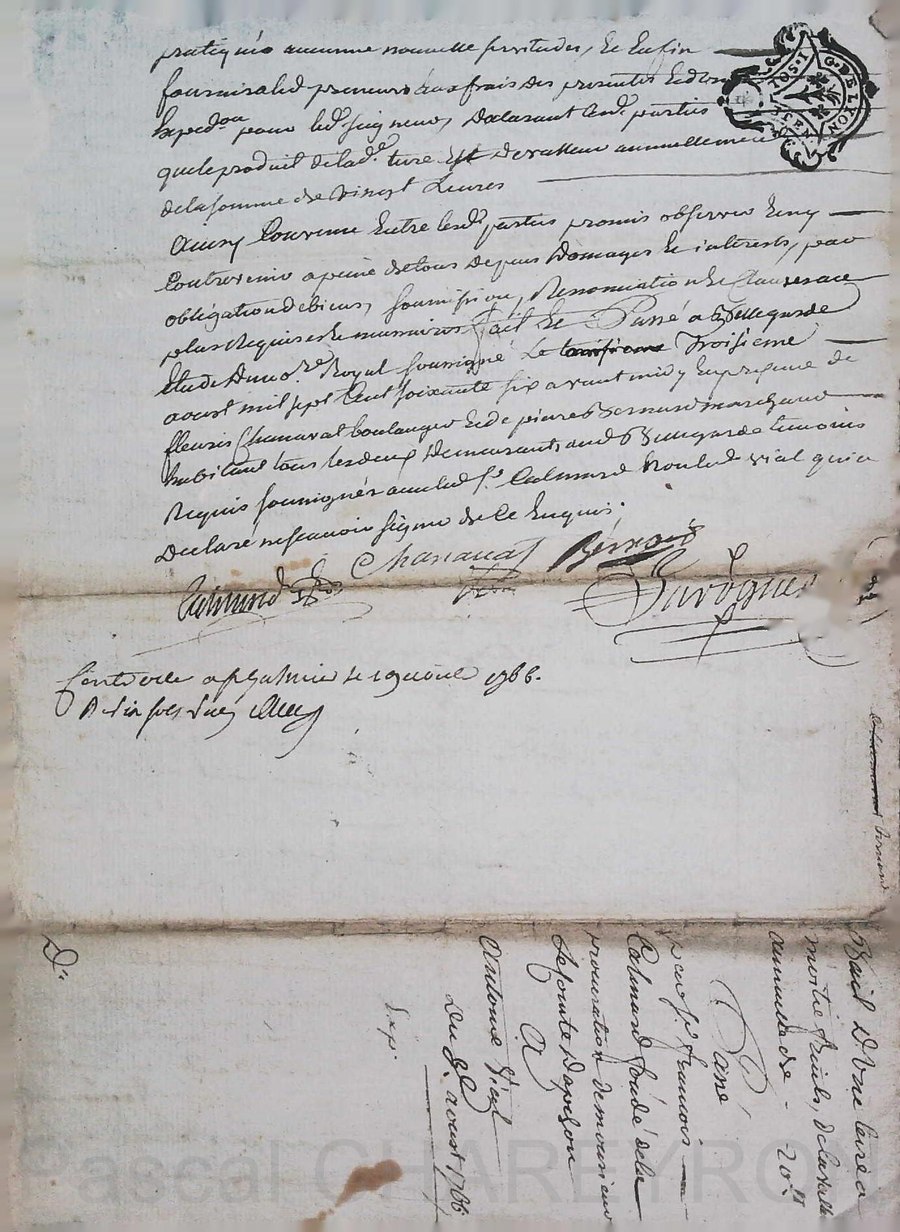 pratiqués aucunne nouvelle servitudes, Et Enfin
fournira led. preneur aux frais des presentes Et d'une
Expedon pour led. seigneur, Declarant lesd. parties
que le produit de lad.e terre Est De valleur annuellement
de la somme de vingt Livres
Ainsy Convenu Entre lesd. parties promis observer Et n'y
Contrevenir a peine de tous Depens Domages Et interests, par
obligation de biens, soumission, Renonciation Et Clauses a ce
plus Requises Et necessaires fait Et Passé a Bellegarde
Etude du no.re Royal soussigné Le troisieme
aoust mil sept Cent soixante six avant midy En presence de
fleury Chanavat boulanger Et de pierre Bernard marchand
habitant tous les deux Demeurant aud. Bellegarde temoins
Requis soussignés avec led. s.r Calmard Non led. vial qui a
Declaré ne sçavoir signer de Ce Enquis.
Chanavat
Bernard
Calmard
Durosnet
Controllé a 1766.
Bail D'une terre a
moitié fruits, de la valleur
annuelle de - 20.ll
Passé
par s.r francois
Calmard fondé de la
procuration de monsieur
Le Comte D'apchon
A
Antoine Vial
Du 3.e aoust 1766
Exp.
D.
Bernard
Pascal CHAREYRON